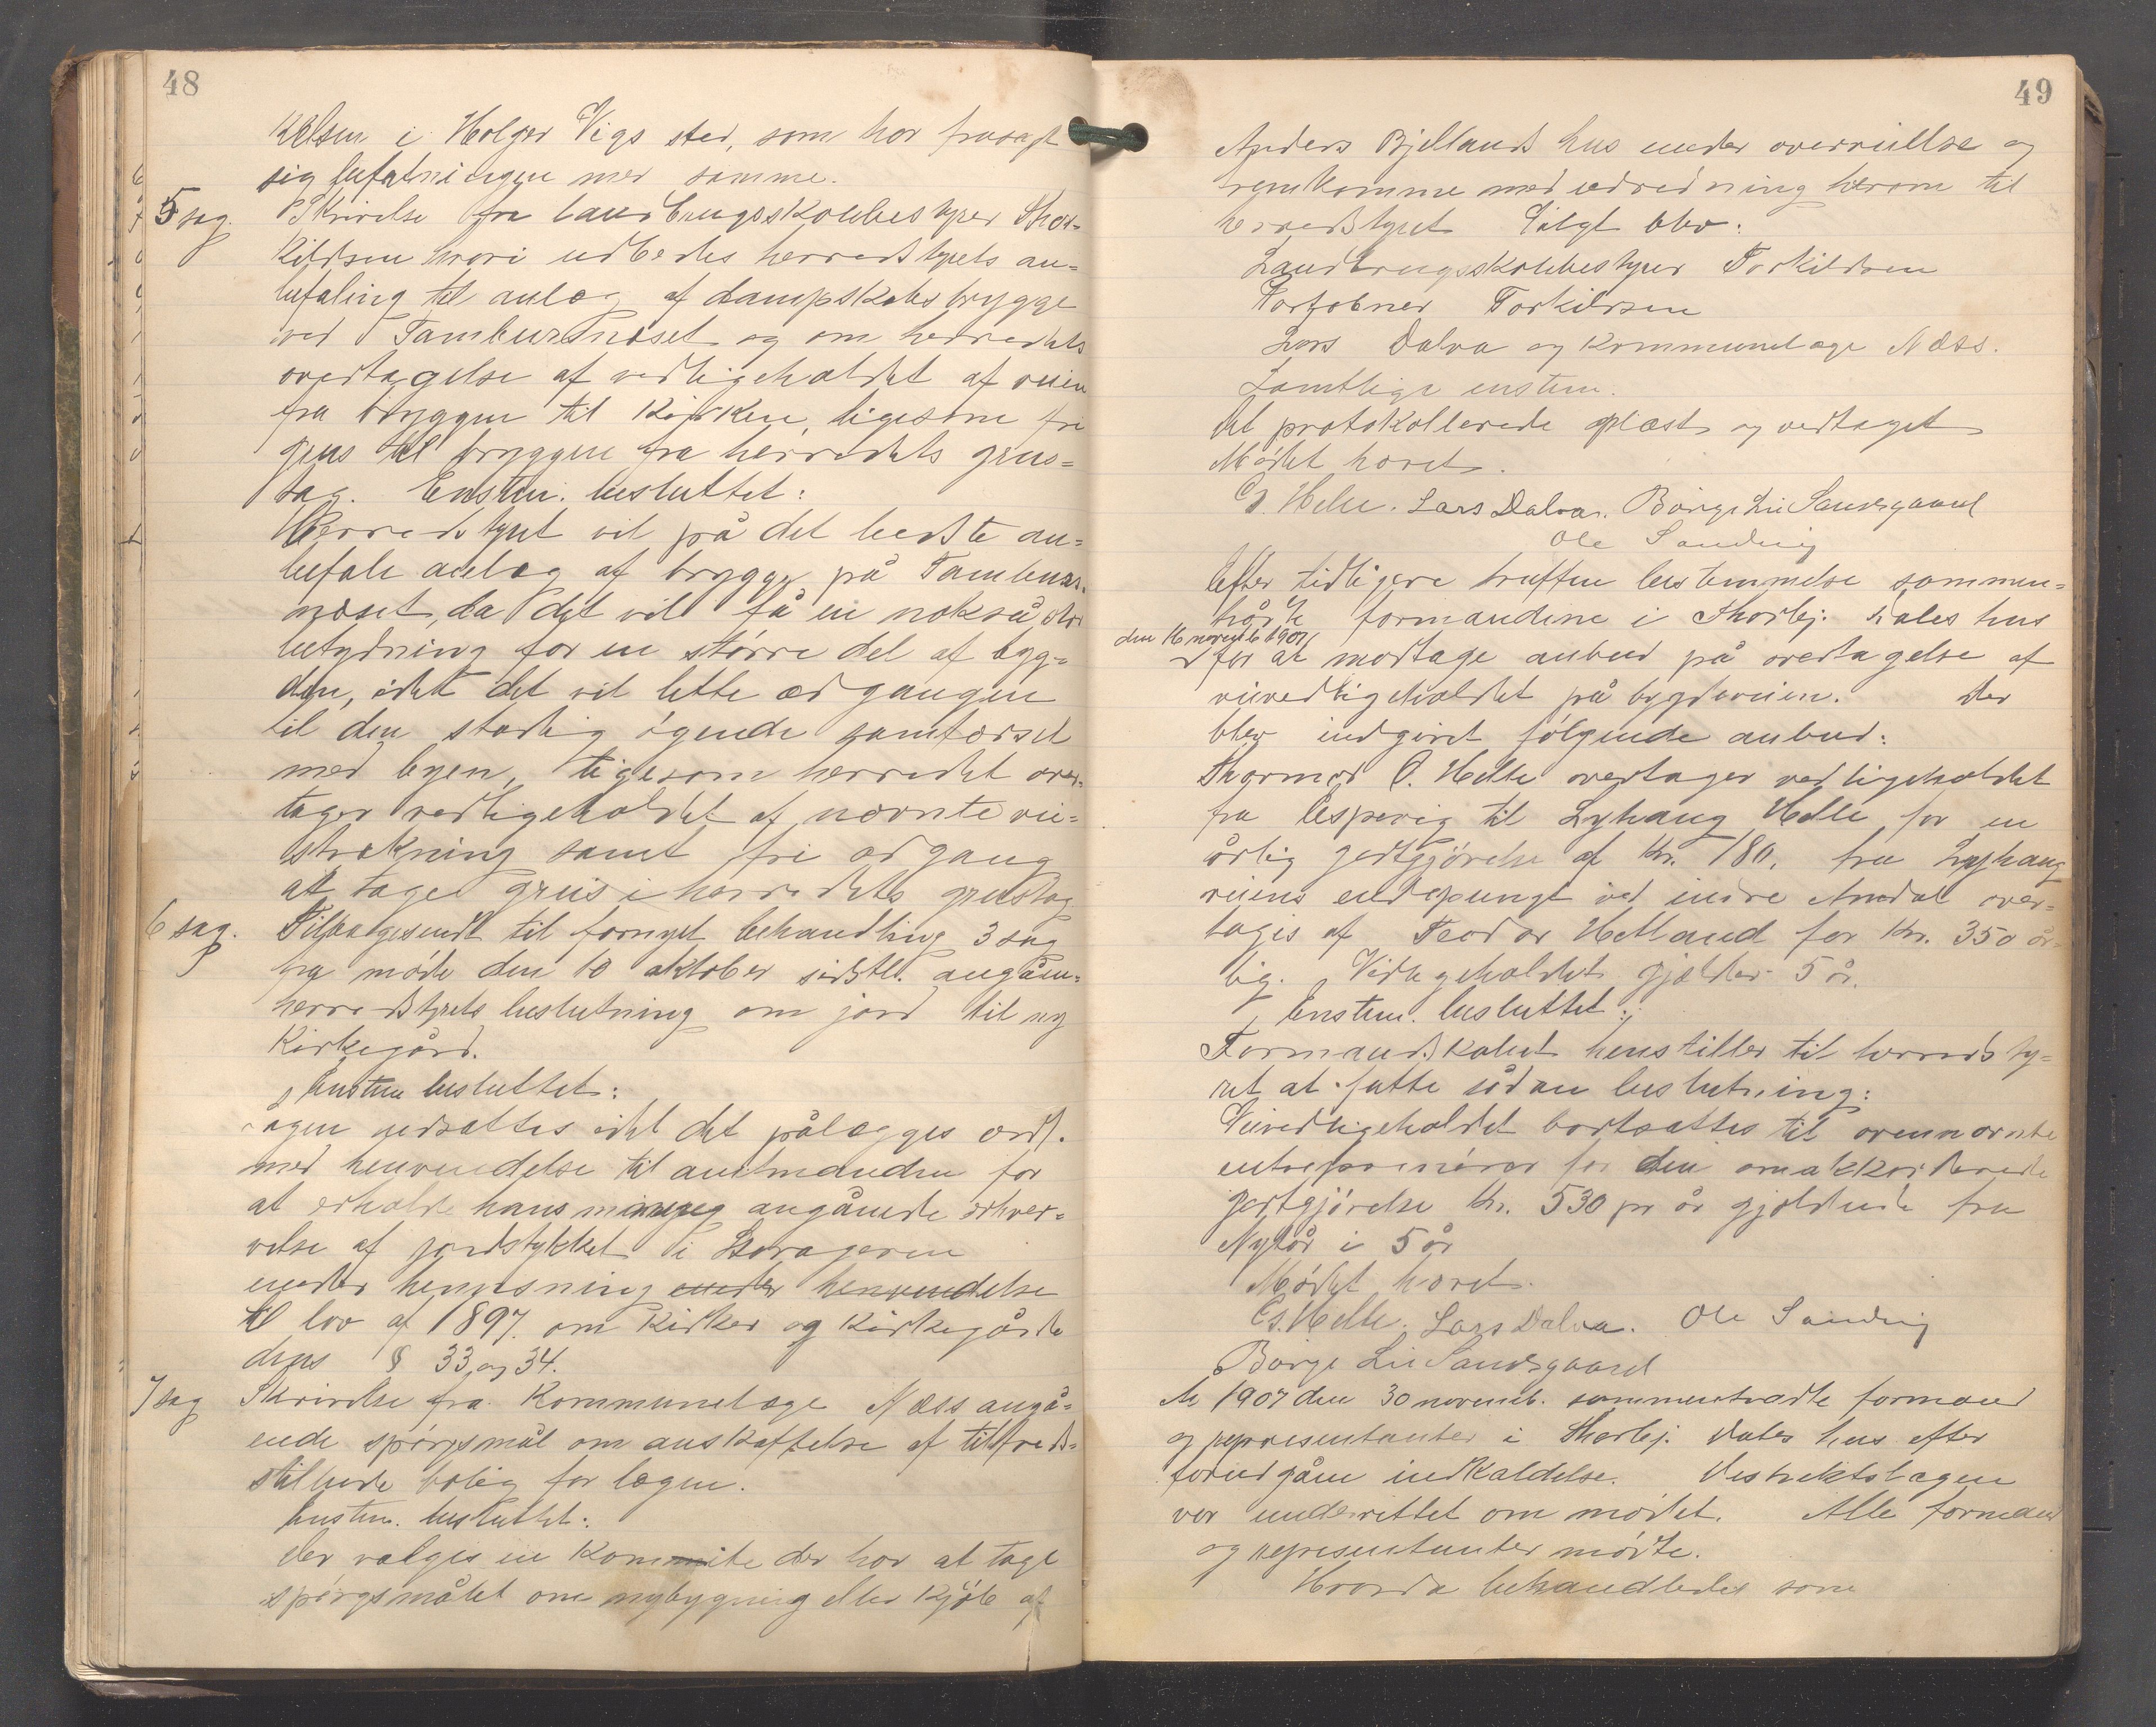 48
Kelsen i Holger Vigs sted, som har frasagt
sig befatningen med samme.
5 sag. Skrivelse fra landbrugsskolebestyrer Thor-
kildsen hvori udbedes herredstyrets an-
befaling til anlæg af dampskibsbrygge
ved Tamburnæset og om herredets
overtagelse af vedligeholdet af veien
fra bryggen til Kirken, ligesom fri
grus til bryggen fra herredets grus-
tag. Enstem. besluttet:
Herredstyret vil på det bedste an-
befale anlæg af brygge på Tambur-
næset, da det vil få en nokså stor
betydning for en større del af byg-
den, idet det vil lette adgangen
til den stadig øgende samfærsel
med byen, ligesom herredet over-
tager vedligeholdet af nævnte vei-
strekning samt fri adgang
at tage grus i herredets grustag
6 sag. Tilbagesendt til fornyet behandling 3 sag
fra møde den 10 oktober sidstl. angåen-
herredstyrets beslutning om jord til ny
Kirkegård.
Enstem besluttet:
agen udsættes idet det pålægges ordf.
med henvendelse til amtmanden for
at erholde hans mening angående erhver-
velse af jordstykket i Storageren
under henvisning under henvendelse
til lov af 1897. om Kirker og Kirkegårde
dens § 33 og 34.
7 sag Skrivelse fra Kommunelæge Næss angå-
ende spørgsmål om anskaffelse af tilfreds-
stillende bolig for lægen.
Enstem. besluttet:
der vælges en Kommite der har at tage
spørgsmålet om nybygning eller Kjøb af
49
Anders Bjellands hus under overveielse og
fremkomme med udredning herom til
herredstyret Valgt blev:
Landbrugsskolebestyrer Torkildsen
Torkildsen
Lars Dalva og Kommunelæge Næss.
Samtlige enstem.
Det protokollerede oplæst og vedtaget
Mødet hævet.
G. Helle. Lars Dalva. Børge Lii Sandsgaard
Ole Sandvig
Efter tidligere truffen bestemmelse sammen-
trådte formændene i Thorbj. Dales hus
den 16 novemb 1907
for at modtage anbud på overtagelse af
veivedligeholdet på bygdeveien. Der
blev indgivet følgende anbud:
Thormod O. Helle overtager vedligeholdet
fra Espevig til Lyhaug Helle for en
årlig godtgjørelse af Kr. 180, fra Lyhaug
veiens endepungt ved indre Amdal over-
tages af Teodor Helland for Kr. 350 år-
lig. Vedligeholdet gjælder 5 år.
Enstem. besluttet:
Formandskabet henstiller til herredsty-
ret at fatte sådan beslutning:
Veivedligeholdet bortsættes til ovennævnte
entreprenører for den omakkorderede
godtgjørelse Kr. 530 pr år gjældende fra
Nytår i 5 år
Mødet hævet.
G. Helle. Lars Dalva. Ole Sandvig
Børge Lii Sandsgaard
År 1907 den 30 novemb. sammentrådte formænd
og representanter i Thorbj. Dales hus efter
forudgåen indkaldelse. Distriktslægen
var underrettet om mødet. Alle formænd
og representanter mødte.
Hvorda behandledes som